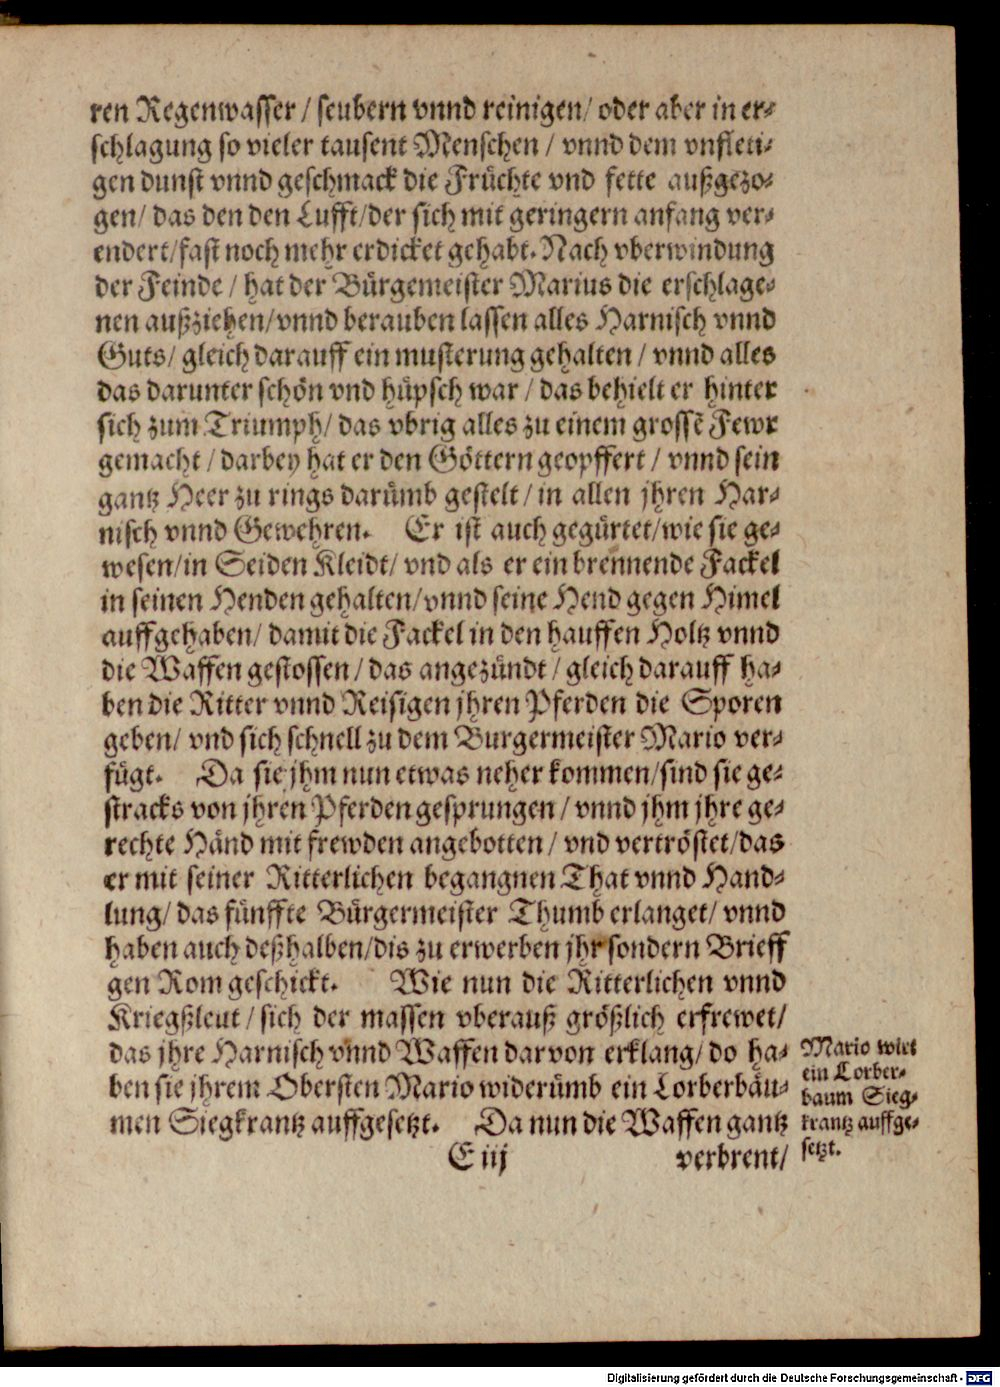 ren Regenwasser / seubern vnnd reinigen/ oder aber in er⸗
schlagung so vieler tausent Menschen / vnnd dem vnfleti⸗
gen dunst vnnd geschmack die Früchte vnd fette außgezo⸗
gen/ das den den Lufft/der sich mit geringern anfang ver⸗
endert/fast noch mehr erdicket gehabt. Nach vberwindung
der Feinde / hat der Bürgemeister Marius die erschlage⸗
nen außziehen/vnnd berauben lassen alles Harnisch vnnd
Guts/ gleich darauff ein musterung gehalten / vnnd alles
das darunter schön vnd hüpsch war / das behielt er hinter
sich zum Triumph/ das vbrig alles zu einem grossẽ Fewr
gemacht / darbey hat er den Göttern geopffert / vnnd sein
gantz Heer zu rings darümb gestelt/ in allen jhren Har⸗
nisch vnnd Gewehren. Er ist auch gegürtet/wie sie ge⸗
wesen/in Seiden Kleidt/ vnd als er ein brennende Fackel
in seinen Henden gehalten/vnnd seine Hend gegen Himel
auffgehaben/ damit die Fackel in den hauffen Holtz vnnd
die Waffen gestossen / das angezündt / gleich darauff ha⸗
ben die Ritter vnnd Reisigen jhren Pferden die Sporen
geben/ vnd sich schnell zu dem Burgermeister Mario ver⸗
fügt. Da sie jhm nun etwas neher kommen/sind sie ge⸗
stracks von jhren Pferden gesprungen / vnnd jhm jhre ge⸗
rechte Händ mit frewden angebotten / vnd vertröstet/das
er mit seiner Ritterlichen begangnen That vnnd Hand⸗
lung/ das fünffte Bürgermeister Thumb erlanget/ vnnd
haben auch deßhalben/dis zu erwerben jhr sondern Brieff
gen Rom geschickt. Wie nun die Ritterlichen vnnd
Kriegßleut / sich der massen vberauß größlich erfrewet/
das jhre Harnisch vnnd Waffen darvon erklang/ do ha⸗
ben sie jhrem Obersten Mario widerümb ein Lorberbäu⸗
men Siegkrantz auffgesetzt. Da nun die Waffen gantz
E iij verbrent/
Mario wirt
ein Lorber⸗
baum Sieg⸗
krantz auffge⸗
setzt.
Digitalisierung gefördert durch die Deutsche Forschungsgemeinschaft - DFG